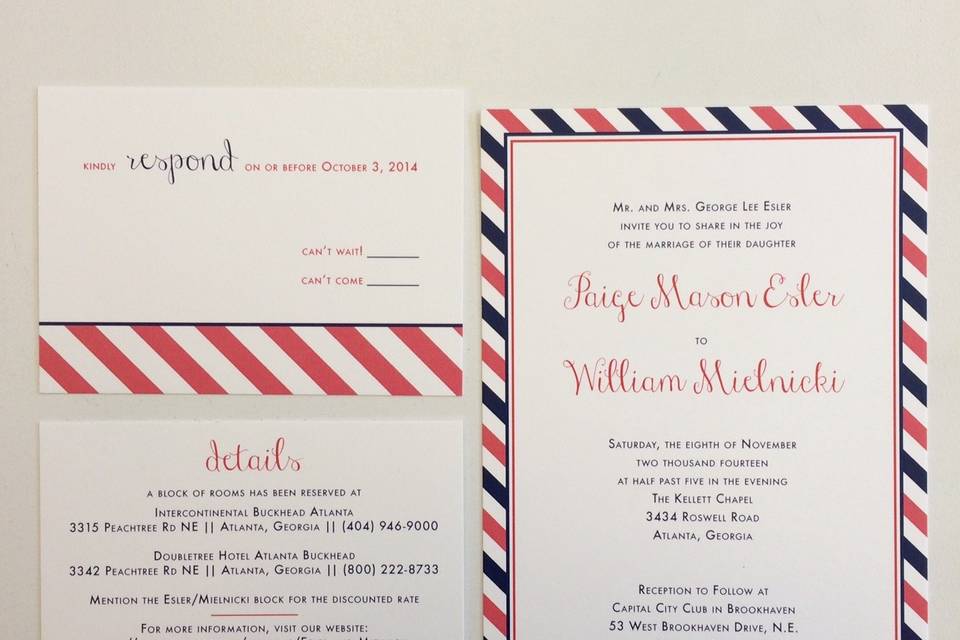 kindly respond on or before October 3, 2014
can't wait!
can't come
details
a block of rooms has been reserved at
Intercontinental Buckhead Atlanta
3315 Peachtree Rd NE || Atlanta, Georgia || (404) 946-9000
Doubletree Hotel Atlanta Buckhead
3342 Peachtree Rd NE || Atlanta, Georgia || (800) 222-8733
Mention the Esler/Mielnicki block for the discounted rate
For more information, visit our website:
Mr. and Mrs. George Lee Esler
invite you to share in the joy
of the marriage of their daughter
Paige Mason Esler
to
William Mielnicki
Saturday, the eighth of November
two thousand fourteen
at half past five in the evening
The Kellett Chapel
3434 Roswell Road
Atlanta, Georgia
Reception to Follow at
Capital City Club in Brookhaven
53 West Brookhaven Drive, N.E.